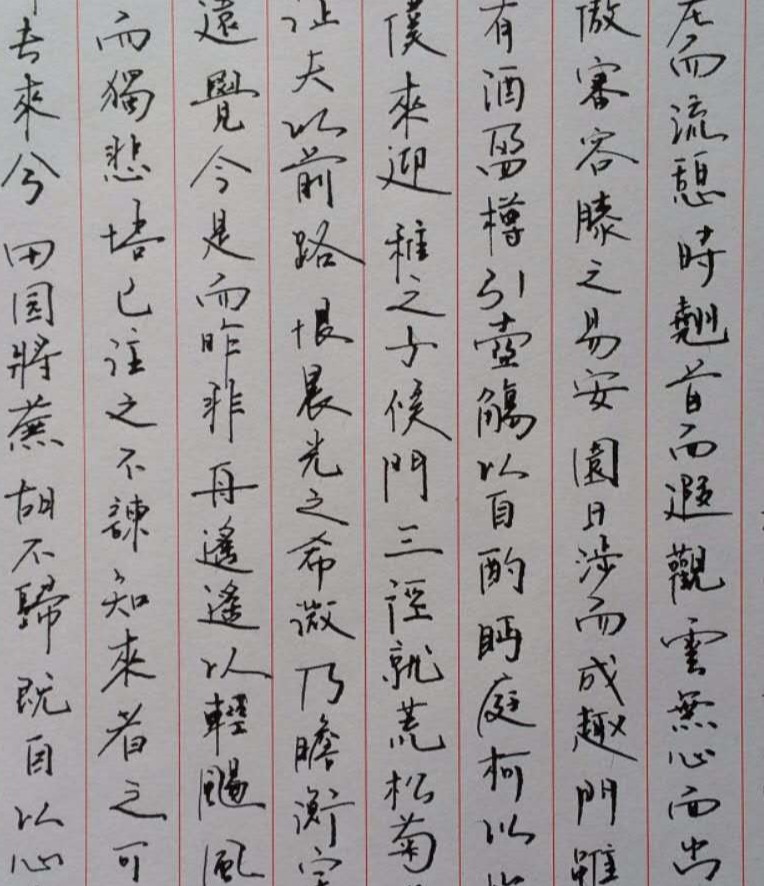 去來兮田园將蕪胡不歸既自以心
而獨悲悟已往之不諫知來者之可
遠覺今是而昨非舟遙遙以輕颺風
征夫以前路恨晨光之希微乃瞻衡宇
僕來迎稚之子候門三徑就荒松菊
有酒盈樽引壺觴以自酌眄庭柯以
傲審容膝之易安園日涉而成趣門雖
老而流憩時翹首而遐觀雲無心而出